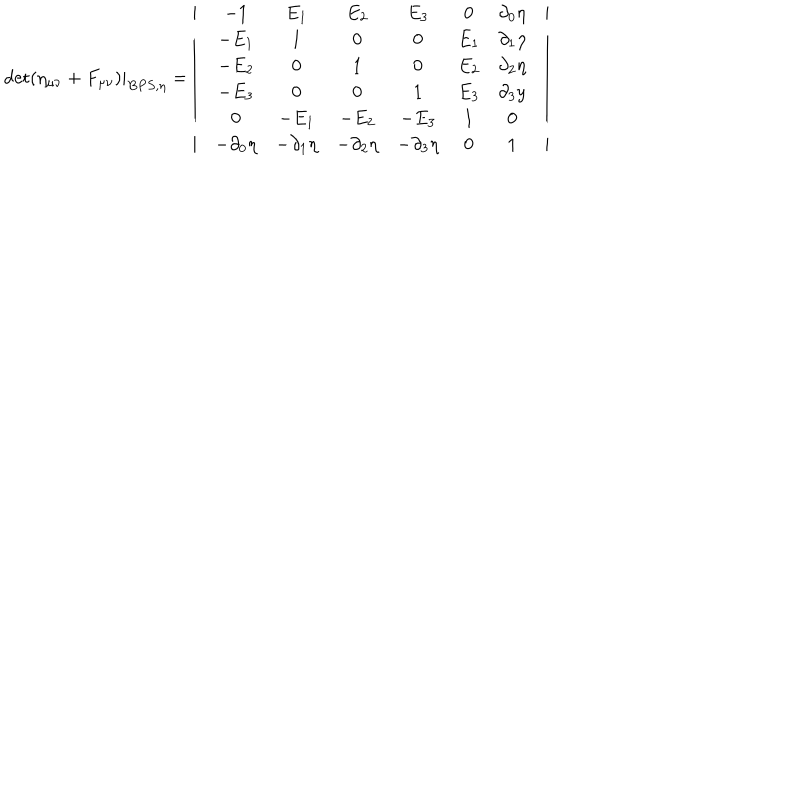 det(η_{μν} + F_{μν})|_{BPS,η} = | -1 E_1 E_2 E_3 0 ∂_0η |
| -E_1 1 0 0 E_1 ∂_1η |
| -E_2 0 1 0 E_2 ∂_2η |
| -E_3 0 0 1 E_3 ∂_3y |
| 0 -E_1 -E_2 -E_3 1 0 |
| -∂_0η -∂_1η -∂_2η -∂_3η 0 1 |